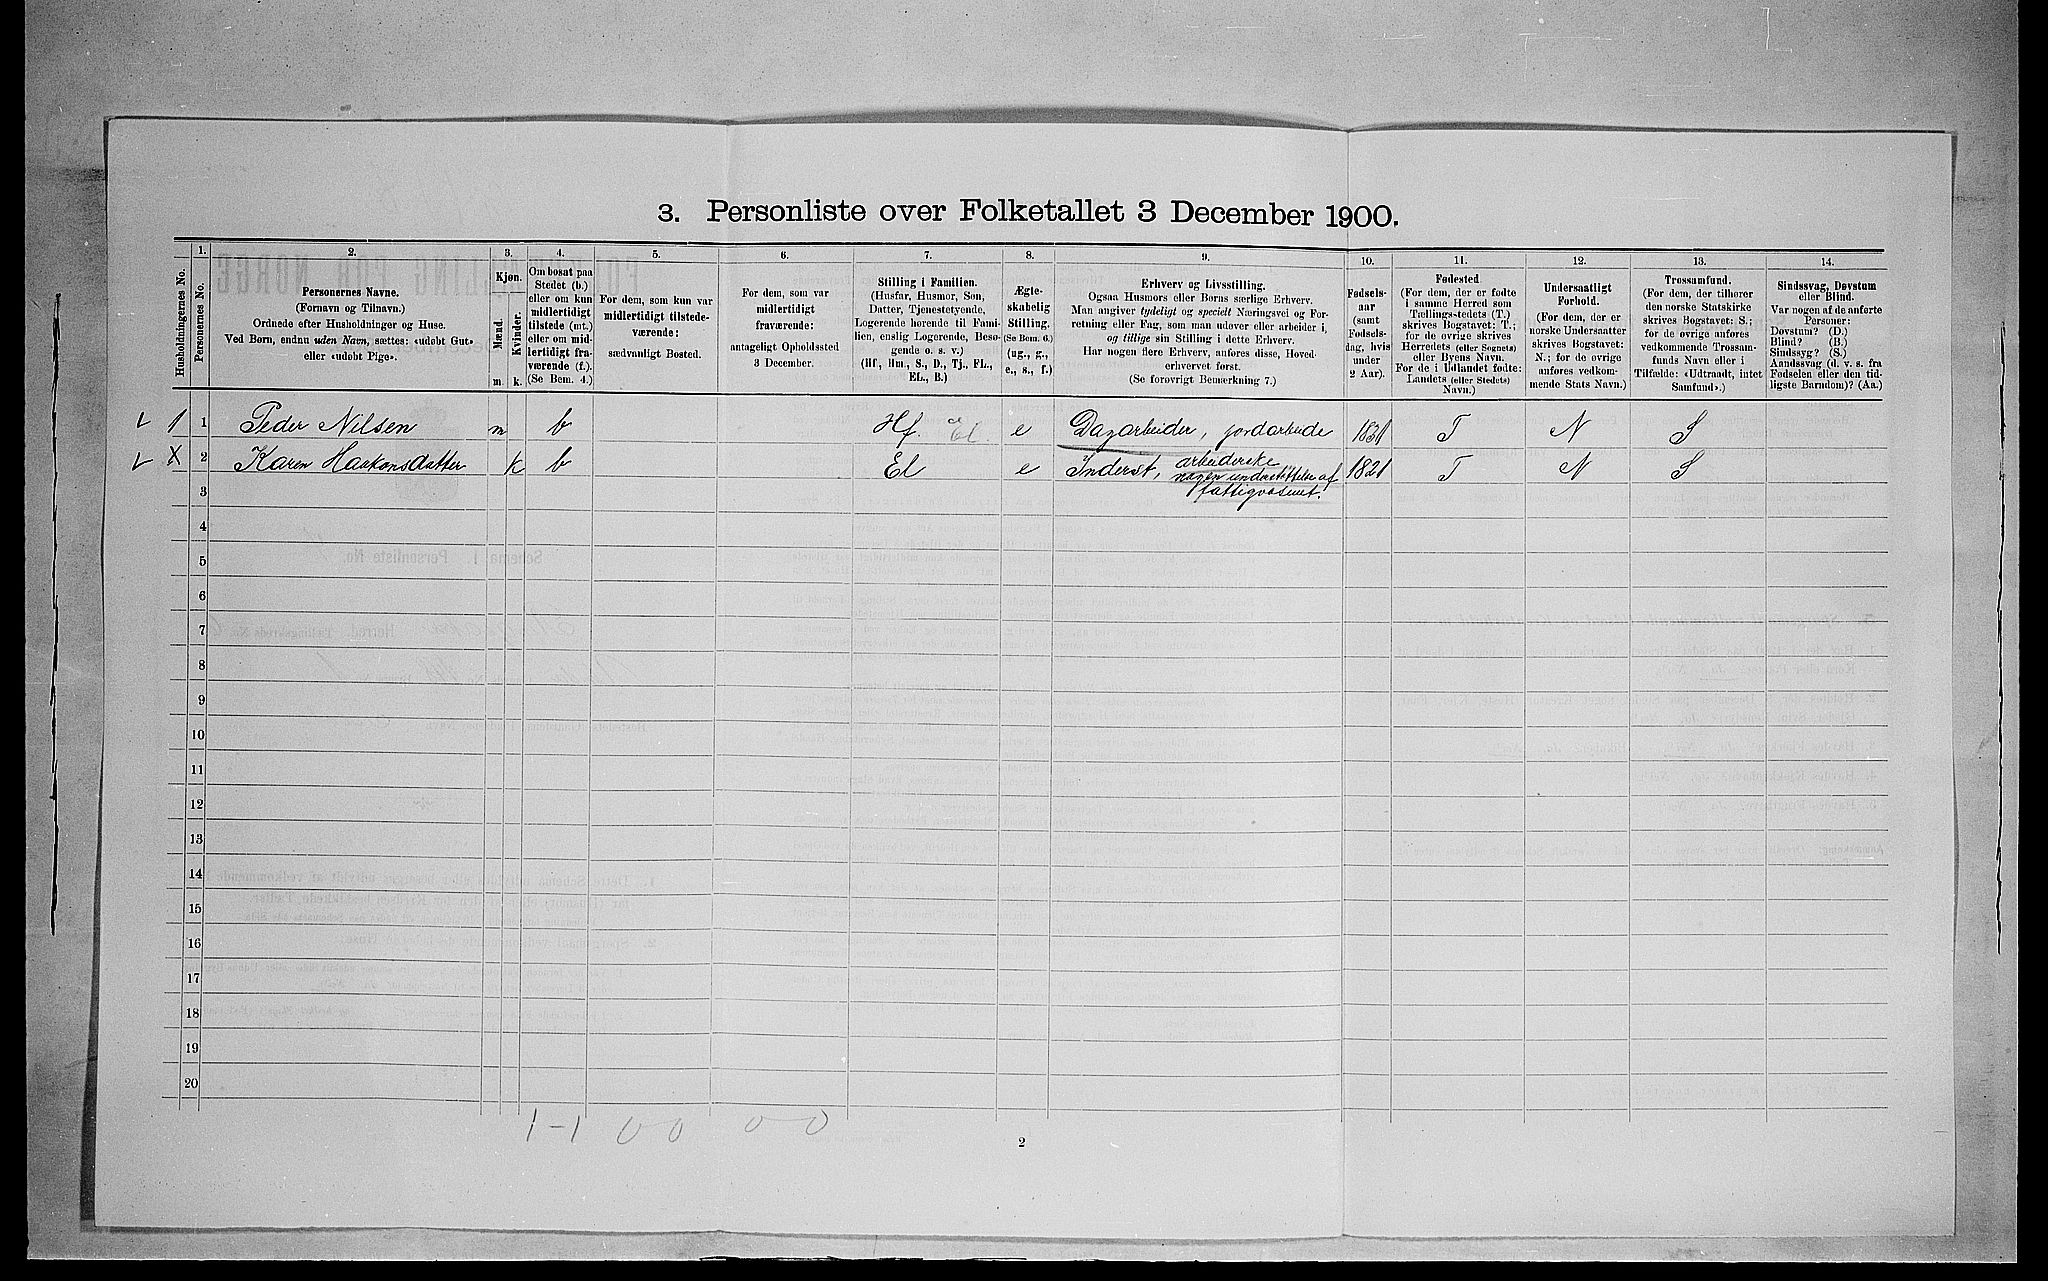 3. Personliste over Folketallet 3 December 1900.
1. 2. 3. 4. 5. 6. 7. 8. 9. 10. 11. 12. 13. 14.
Husholdningernes No.
Personernes No.
Personernes Navne.
(Fornavn og Tilnavn.)
Ordnede efter Husholdninger og Huse.
Ved Børn, endnu uden Navn, sættes: «udøbt Gut»
eller «udøbt Pige».
Kjøn.
Mænd.
Kvinder.
m. k.
Om bosat paa
Stedet (b.)
eller om kun
midlertidigt
tilstede (mt.)
eller om mid-
lertidigt fra-
værende (f.).
(Se Bem. 4.)
For dem, som kun var
midlertidigt tilstede-
værende:
sædvanligt Bosted.
For dem, som var
midlertidigt
fraværende:
antageligt Opholdssted
3 December.
Stilling i Familien.
(Husfar, Husmor, Søn,
Datter, Tjenestetyende,
Logerende hørende til Fami-
lien, enslig Logerende, Besø-
gende o. s. v.)
(Hf, Hm., S., D., Tj., FL.,
EL., B.)
Ægte-
skabelig
Stilling.
(Se Bem. 6.)
(ug., g.,
e., s., f.)
Erhverv og Livsstilling.
Ogsaa Husmors eller Børns særlige Erhverv.
Man angiver tydeligt og specielt Næringsvei og For-
retning eller Fag, som man udøver eller arbeider i,
og tillige sin Stilling i dette Erhverv.
Har nogen flere Erhverv, anføres disse, Hoved-
erhvervet først.
(Se forøvrigt Bemærkning 7.)
Fødsels-
aar
(samt
Fødsels-
dag, hvis
under
2 Aar).
Fødested
(For dem, der er fødte
i samme Herred som
Tællings-stedets (T.)
skrives Bogstavet: T.;
for de øvrige skrives
Herredets (eller Sognets)
eller Byens Navn.
For de i Udlandet fødte:
Landets (eller Stedets)
Navn.)
Undersaatligt
Forhold.
(For dem, der er
norske Undersaatter
skrives Bogstavet:
N.; for de øvrige
anføres vedkom-
mende Stats Navn.)
Trossamfund.
(For dem, der tilhører
den norske Statskirke
skrives Bogstavet: S.;
for de øvrige anføres
vedkommende Trossam-
funds Navn eller i
Tilfælde: «Udtraadt, intet
Samfund».)
Sindssvag, Døvstum
eller Blind.
Var nogen af de anførte
Personer:
Døvstum? (D.)
Blind? (B.)
Sindssyg? (S.)
Aandssvag (d. v. s. fra
Fødselen eller den tid-
ligste Barndom)? (Aa.)
1 1 Peder Nilsen m b Hf. El. e Dagarbeider, jordarbeide 1831 T N S
X 2 Karen Haakonsdatter k b El e Inderst, arbeiderske 1821 T N S
nyder understøttelse af
fattigvæsenet.
3
4
5
6
7
8
9
10
11
12
13
14
15
16
17
18
19
20
1-1 0 0 0-0
2